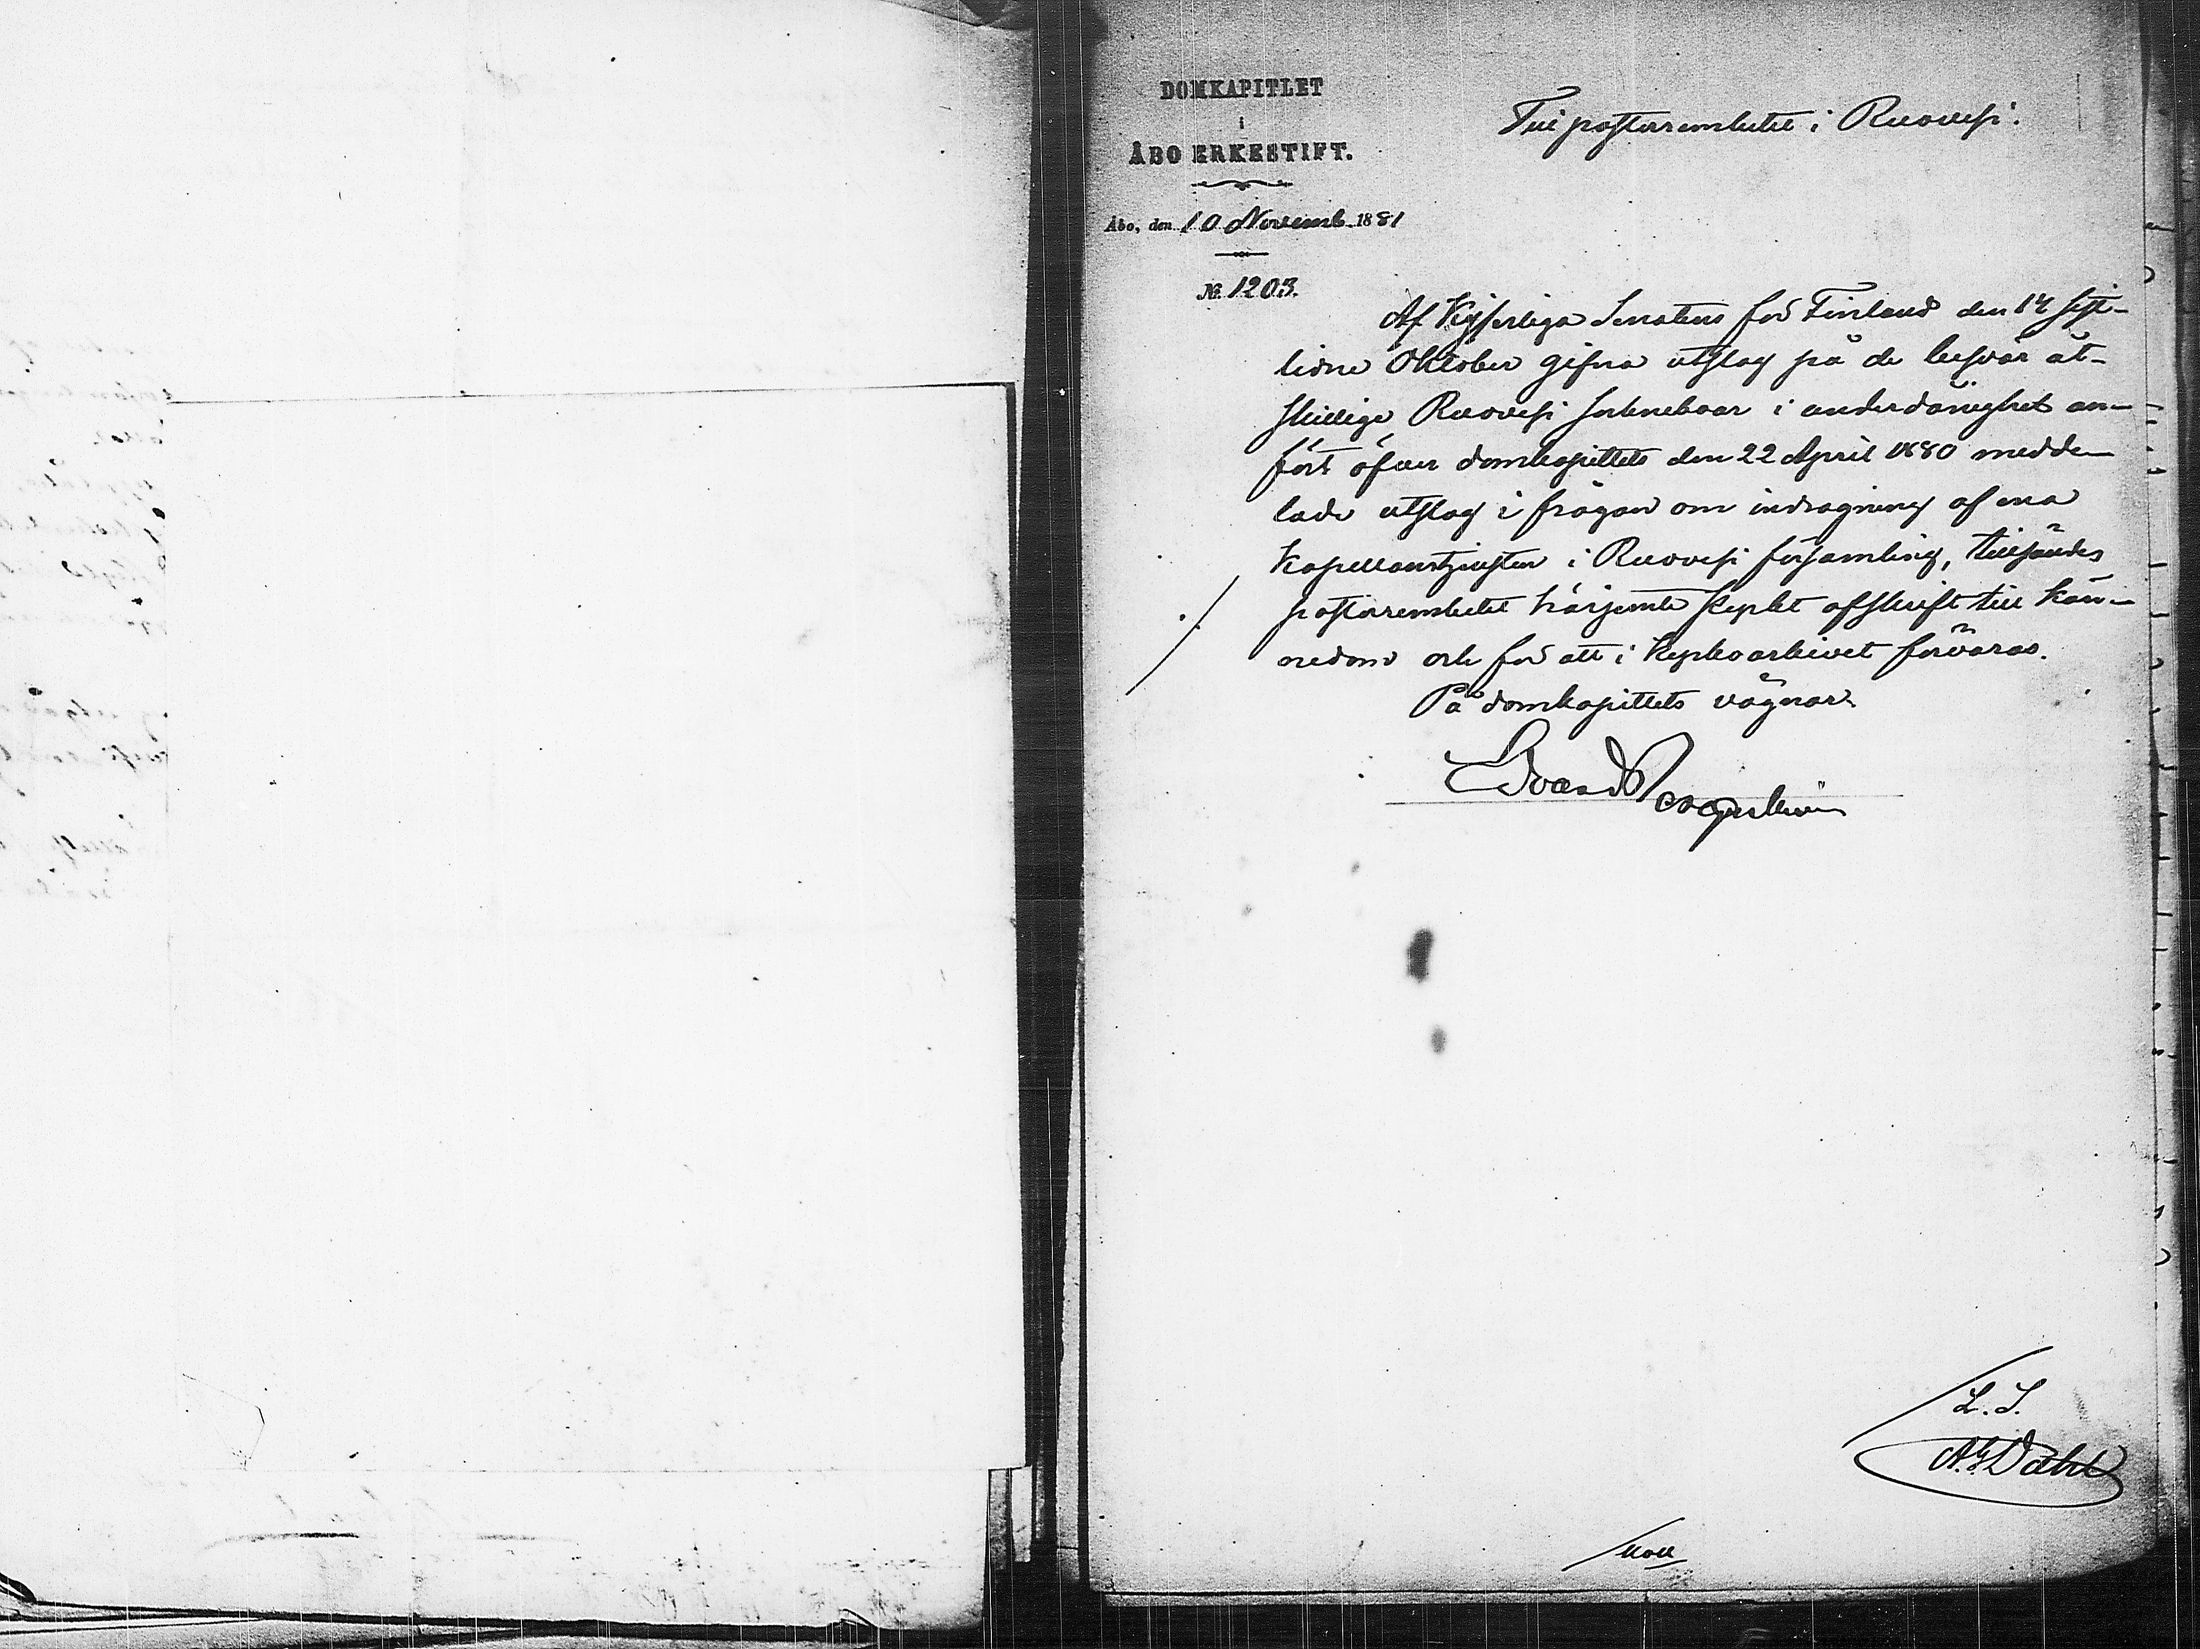 DOMKAPITLET
i
ÅBO ERKESTIFT.
Åbo, den 10 Novemb. 1881
№ 1203.
Till pastorsembetet i Ruovesi.
Af Kejserliga Senaten för Finland den 14 sist-
lidne Oktober gifna utslag på de besvär åt-
skillige Ruovesi sockneboar i underdånighet an-
fört öfver domkapitlets den 22 April 1880 medde-
lade utslag i frågan om indragning af ena
kapellanstjensten i Ruovesi församling, tillsändes
pastorsembetet härjemte styrkt afskrift till kän-
nedom och för att i kyrkoarkivet förvaras.
På domkapitlets vägnar:
Edvard Bergenheim
L. S.
A. G. Dahl